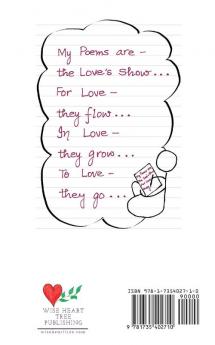 My Poems are –
the Love's Show...
For Love –
they flow...
In Love –
they grow...
To Love –
they go...
ISBN 978-1-7354027-1-0
90000
9 781735 402710
WISE HEART
TREE
PUBLISHING